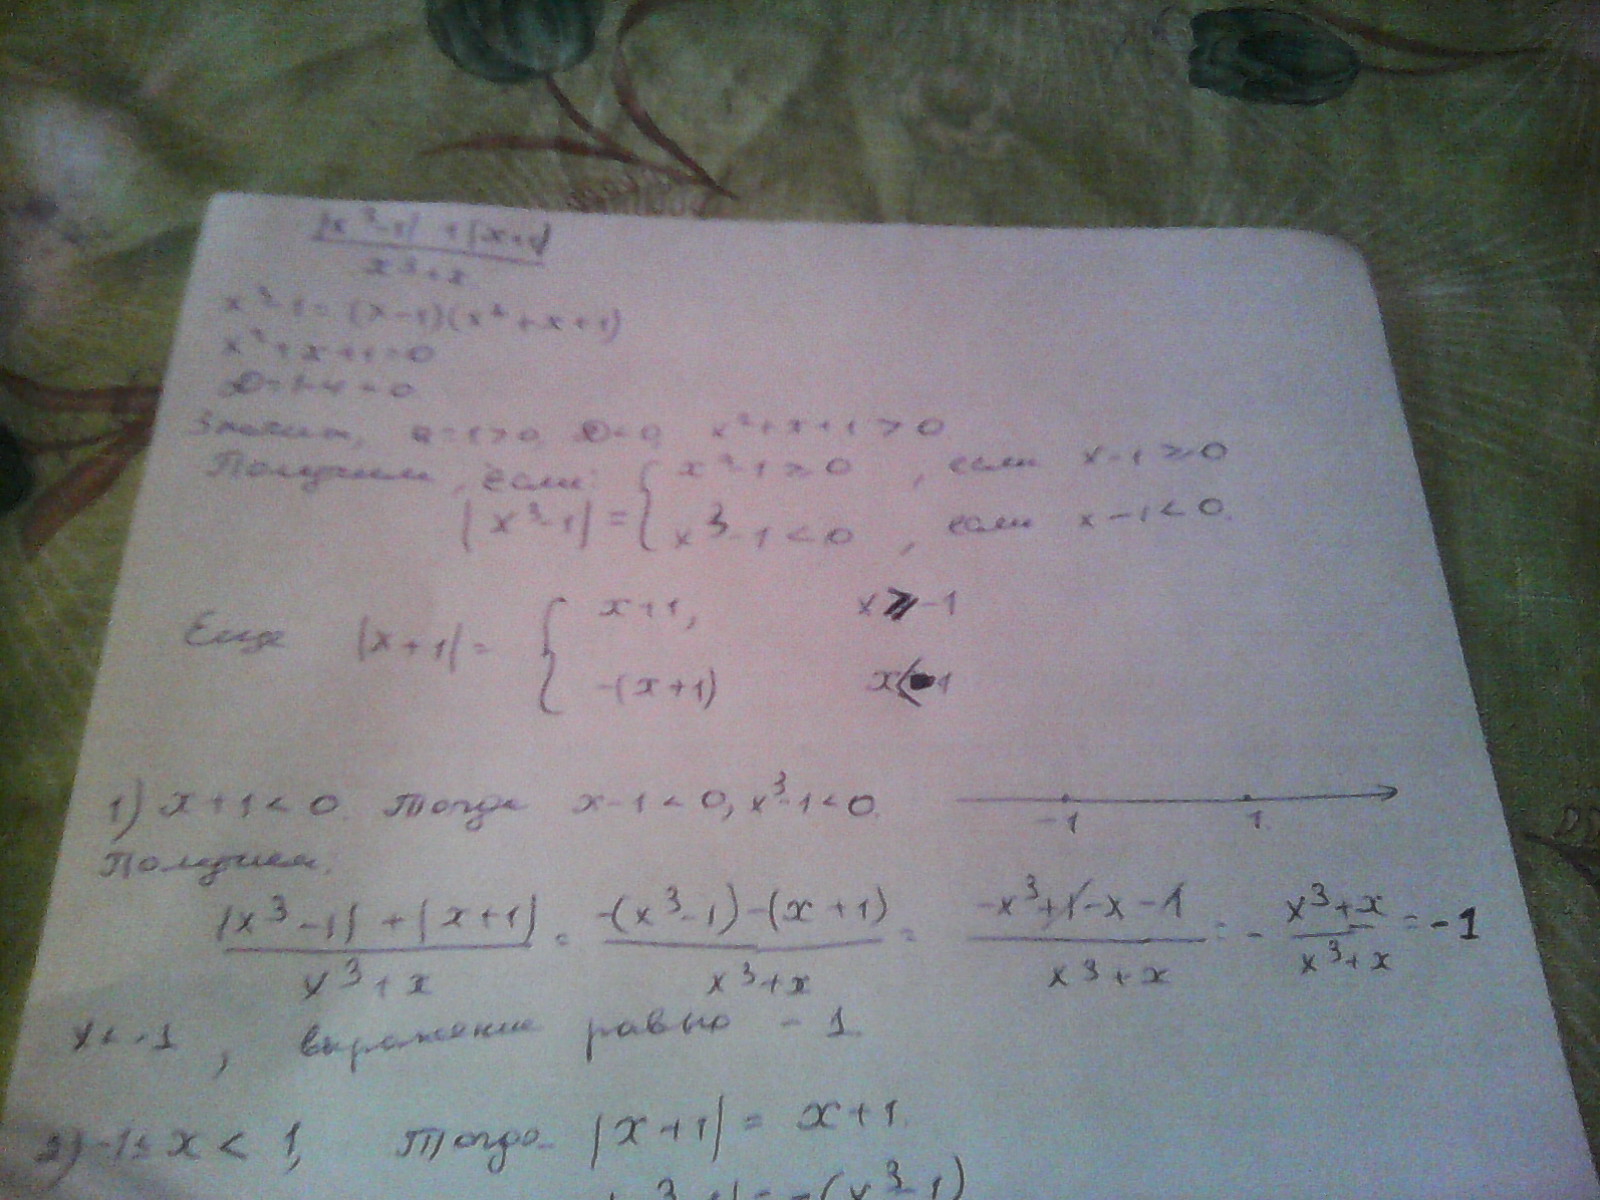 |x³-1| + |x+1|
x³+x
x³-1=(x-1)(x²+x+1)
x²+x+1=0
D=1-4<0
Значит, a=1>0, D<0, x²+x+1>0
Получим, если:
|x³-1| = { x³-1≥0, если x-1≥0
x³-1<0, если x-1<0.
Еще |x+1| = { x+1, x≥-1
-(x+1) x<-1
1) x+1<0. Тогда x-1<0, x³-1<0.
-1 1
Получим:
(|x³-1| + |x+1|)/(x³+x) = (-(x³-1)-(x+1))/(x³+x) = (-x³+1-x-1)/(x³+x) = - (x³+x)/(x³+x) = -1
x<-1, выражение равно -1.
2) -1≤x<1, Тогда |x+1| = x+1.
|x³-1| = -(x³-1)